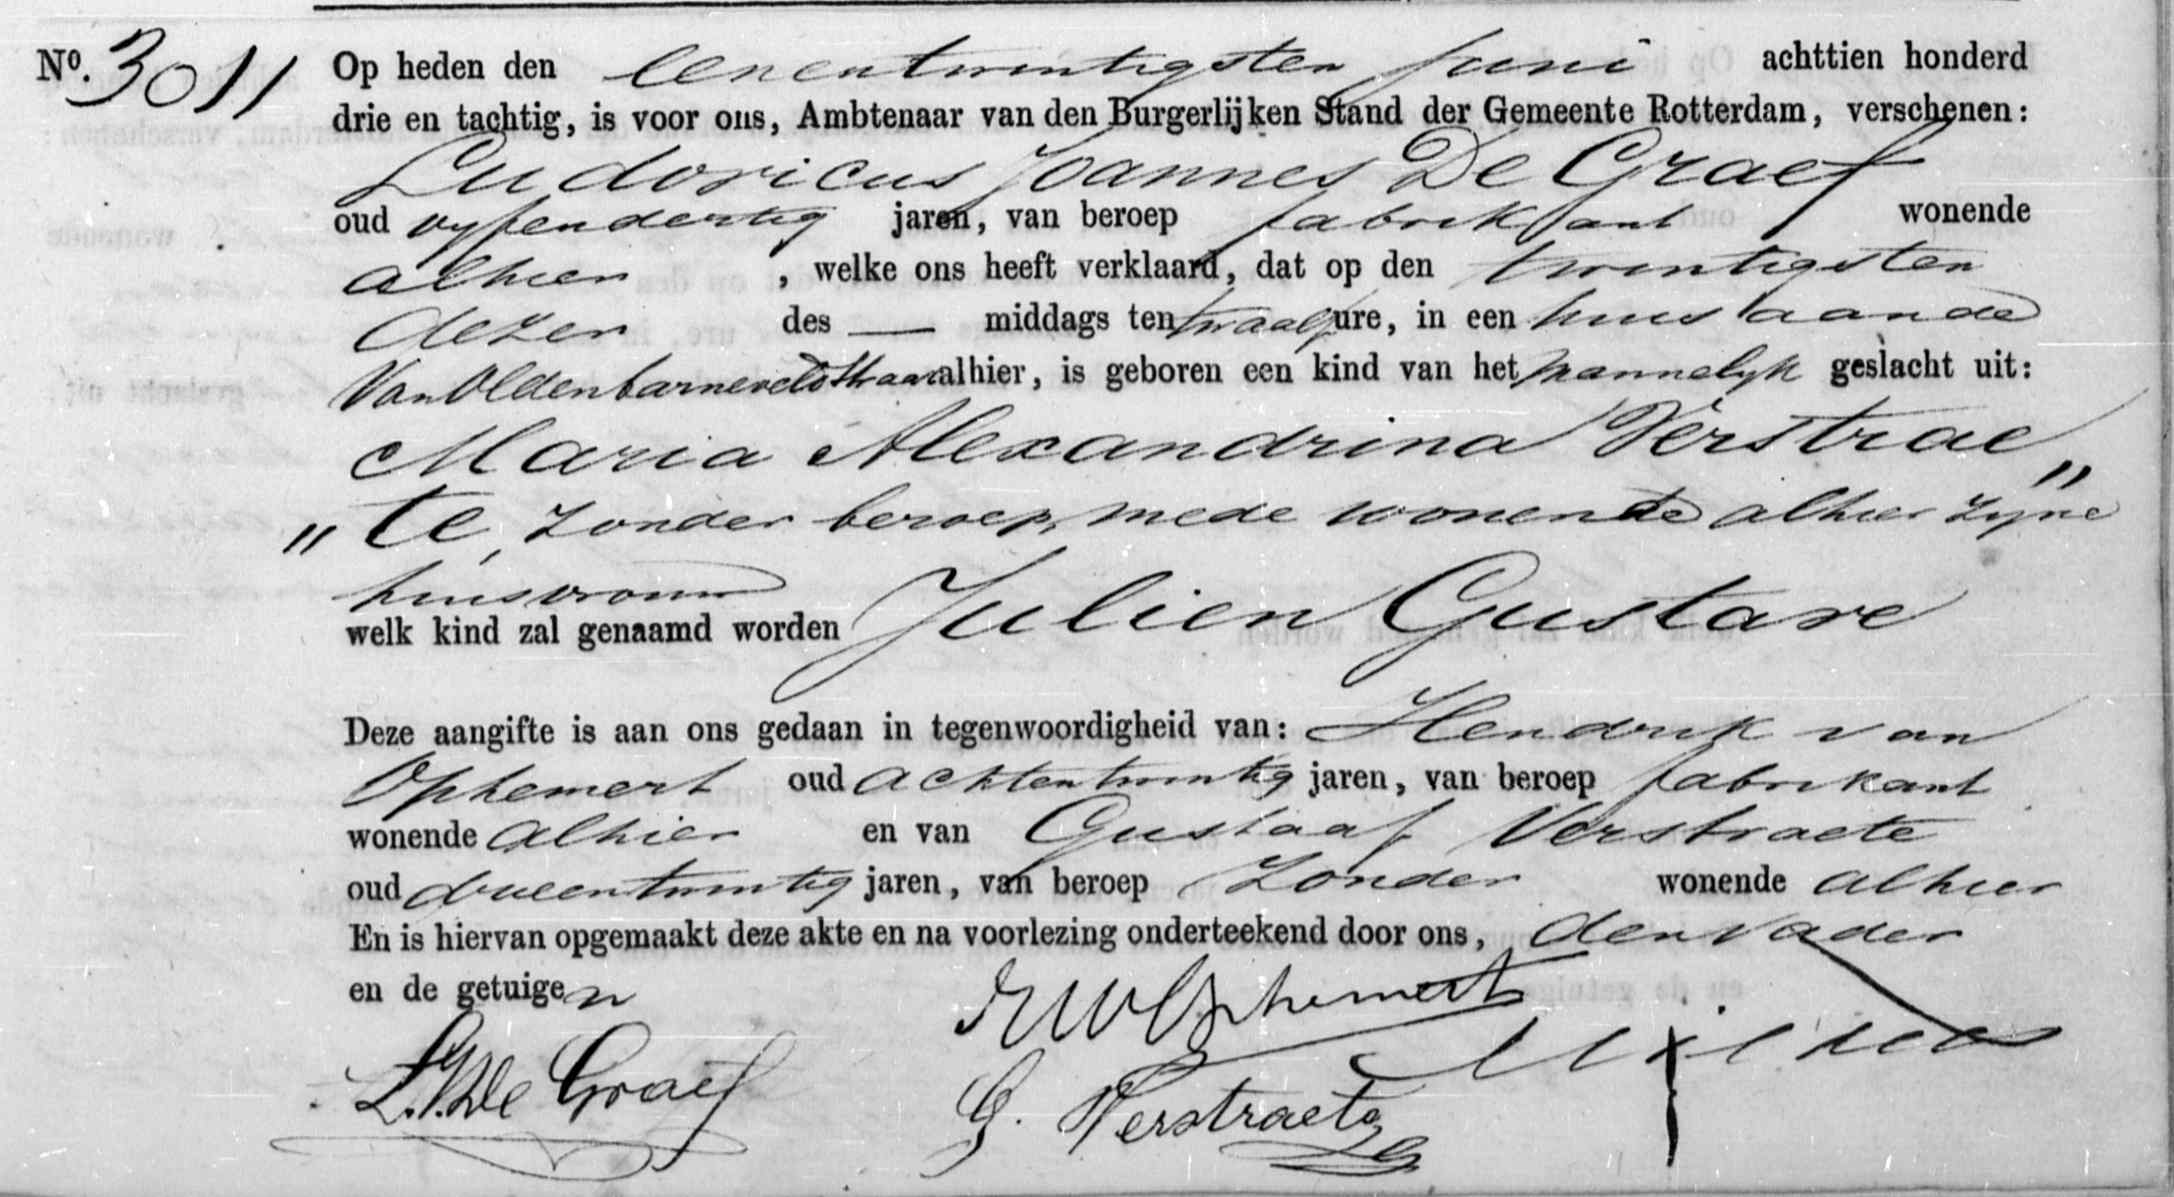 No. 3011 Op heden den eenentwintigsten Juni achttien honderd
drie en tachtig, is voor ons, Ambtenaar van den Burgerlijken Stand der Gemeente Rotterdam, verschenen:
Ludovicus Joannes De Graef
oud vyfendertig jaren, van beroep fabrikant wonende
alhier , welke ons heeft verklaard, dat op den twintigsten
dezer des — middags ten twaalf ure, in een huis aan de
Van Oldenbarneveldtstraat alhier, is geboren een kind van het mannelyk geslacht uit:
Maria Alexandrina Verstrae„
„te, zonder beroep, mede wonende alhier zyne
huisvrouw
welk kind zal genaamd worden Julien Gustave
Deze aangifte is aan ons gedaan in tegenwoordigheid van: Hendrik van
Ophemert oud achtentwintig jaren, van beroep fabrikant
wonende alhier en van Gustaaf Verstraete
oud drieentwintig jaren, van beroep zonder wonende alhier
En is hiervan opgemaakt deze akte en na voorlezing onderteekend door ons, den vader
en de getuigen
HWvOphemert
L.J. De Graef
G. Verstraete